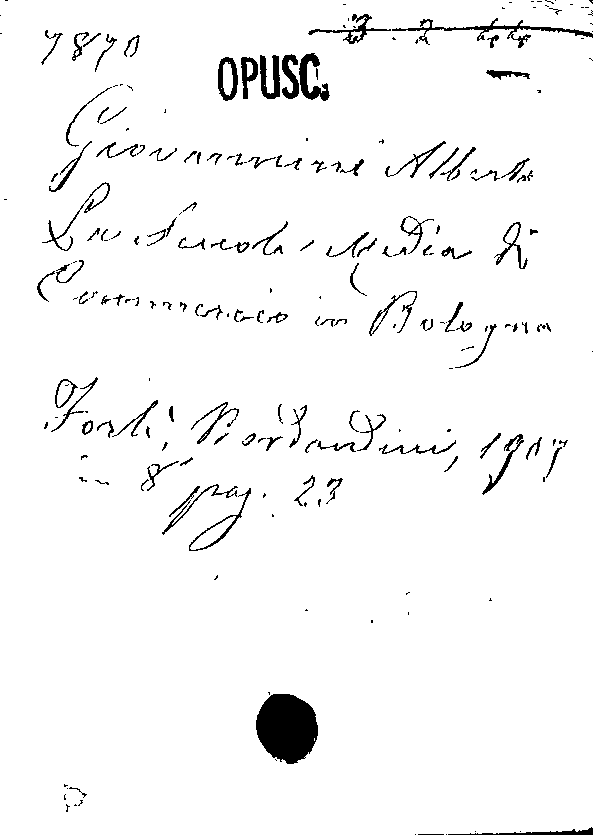 7870
OPUSC.
Giovannini Alberto
La Scuola Media di
Commercio in Bologna
Forlì, Bordandini, 1907
in 8° pag. 23